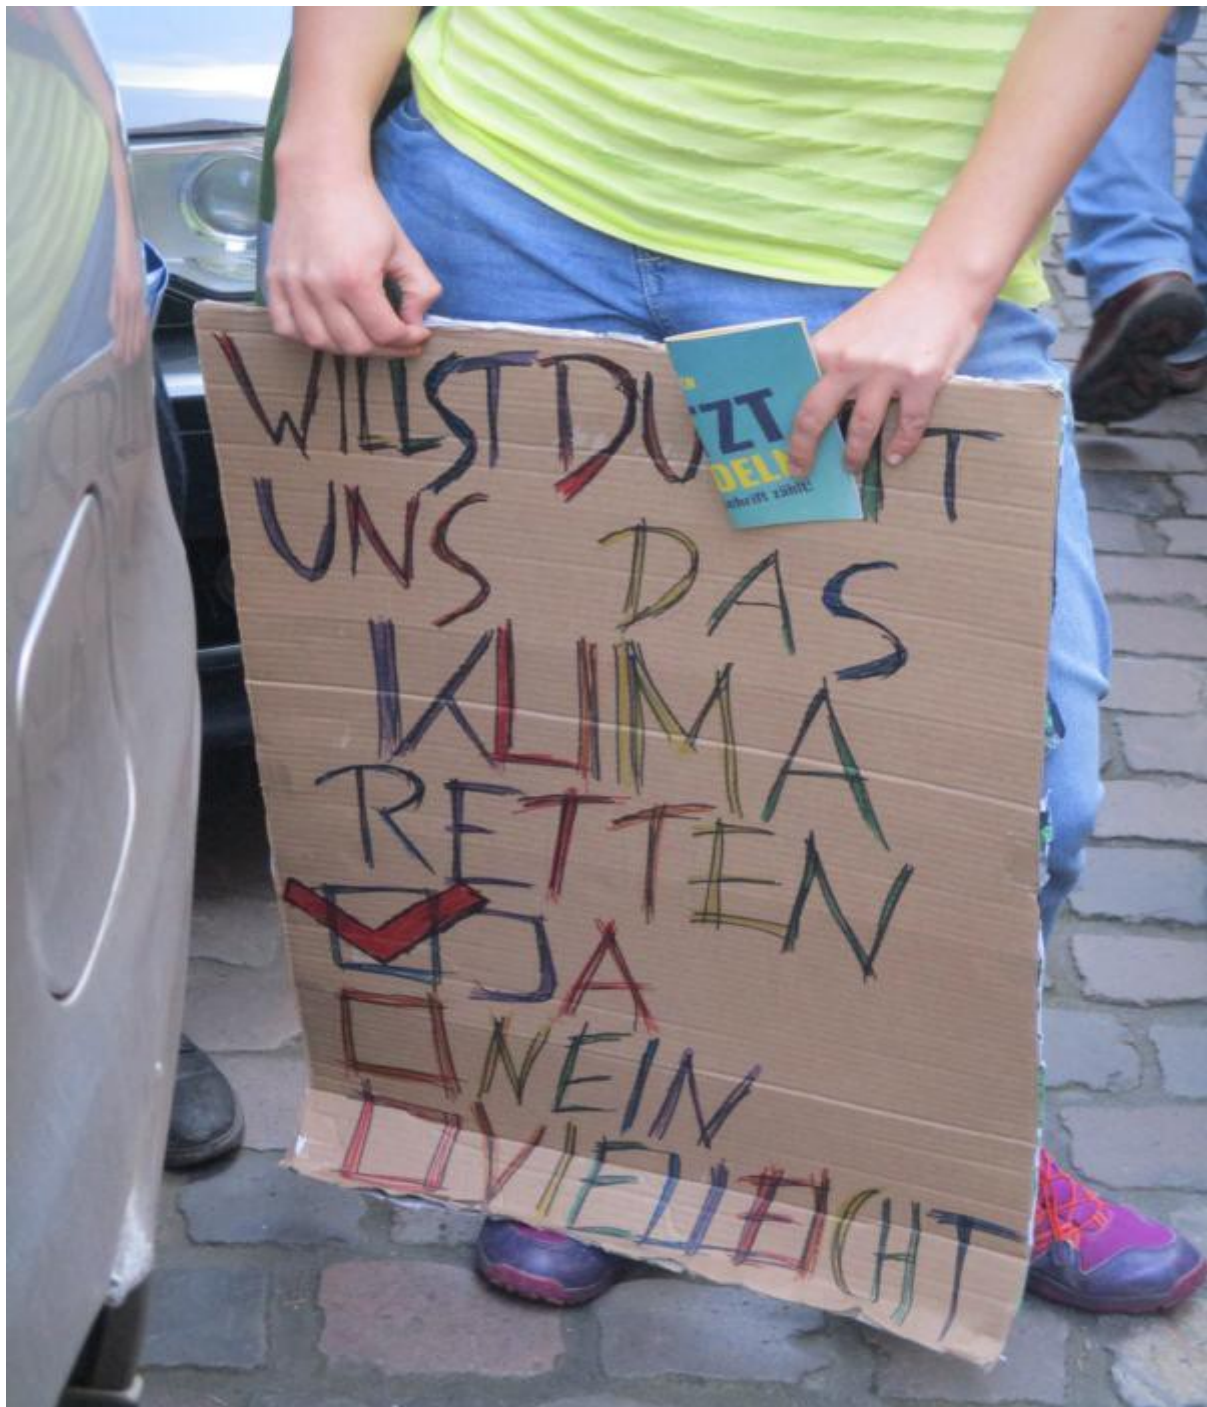 WILLST DU MIT
UNS DAS
KLIMA
RETTEN
JA
NEIN
VIELLEICHT
ZT
DELN
chrift zählt!